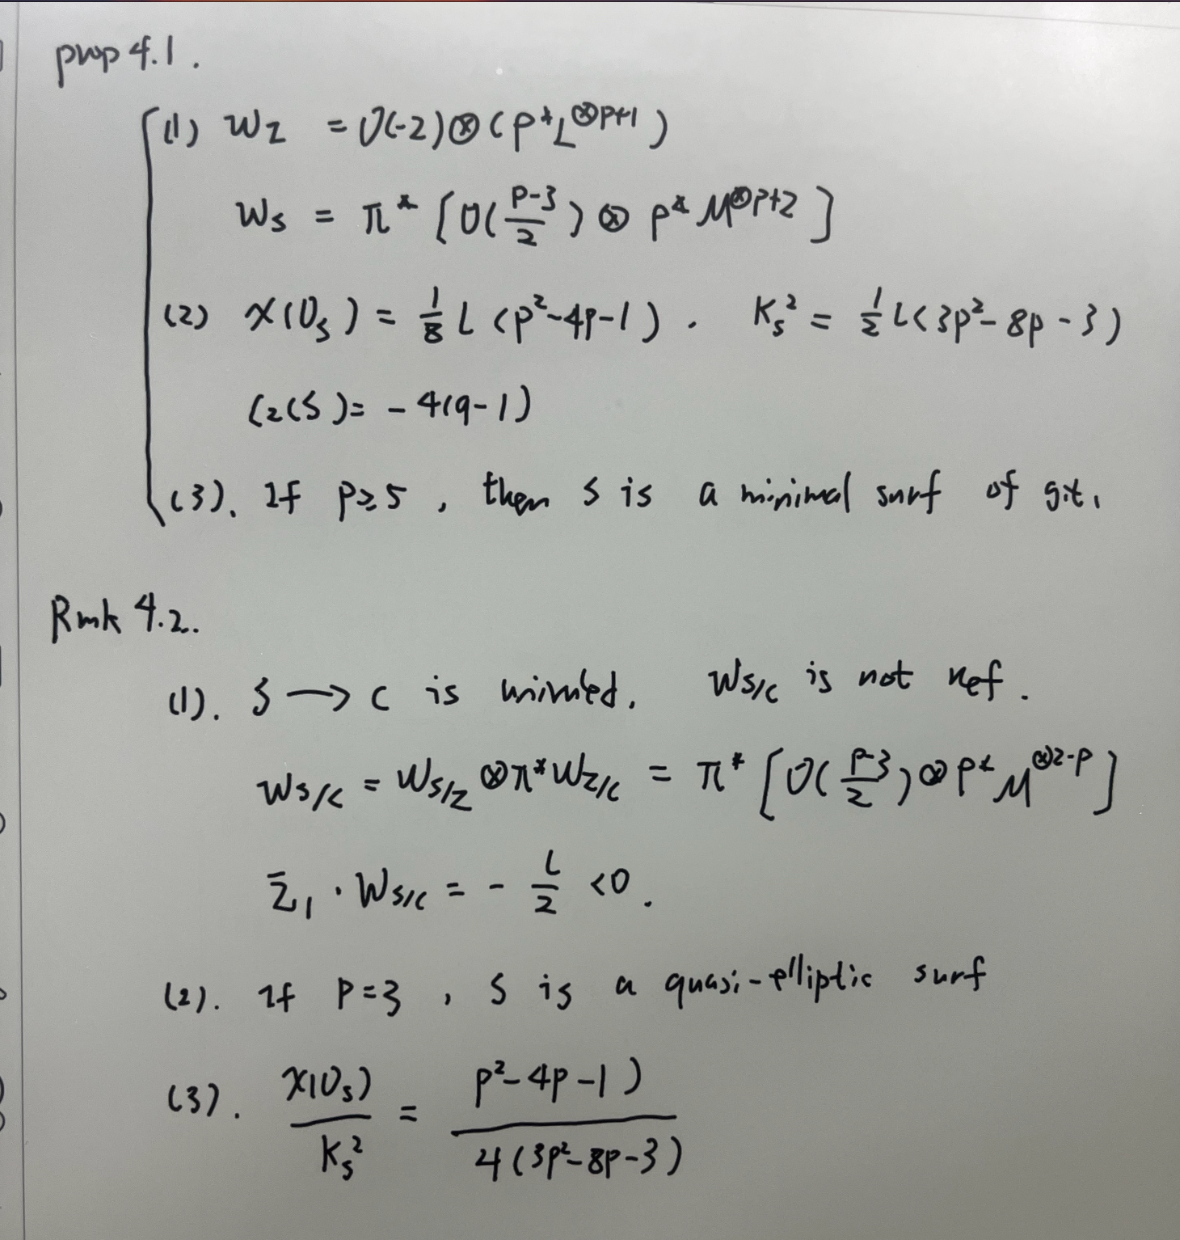 prop 4.1.
(1) W_Z = O(-2)⊗(p*L^{⊗p+1})
W_S = π*[O(\frac{p-3}{2})⊗p*M^{⊗p+2}]
(2) χ(O_S) = \frac{1}{8} l (p²-4p-1). K_S² = \frac{1}{2} l(3p²-8p-3)
C_2(S) = -4(q-1)
(3). If p≥5, then S is a minimal surf of g.t.
Rmk 4.2.
(1). S → C is . W_{S/C} is not nef.
W_{S/C} = W_{S/Z}⊗π*W_{Z/C} = π*[O(\frac{p-3}{2})⊗p*M^{⊗2-p}]
\bar{Z}_1 · W_{S/C} = -\frac{l}{2} <0.
(2). If p=3, S is a quasi-elliptic surf
(3). \frac{χ(O_S)}{K_S²} = \frac{p²-4p-1)}{4(3p²-8p-3)}